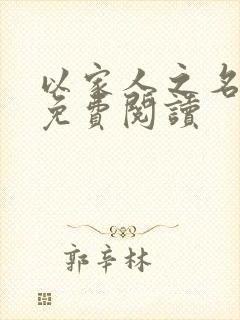 以家人之名
免費閱讀
郭辛林